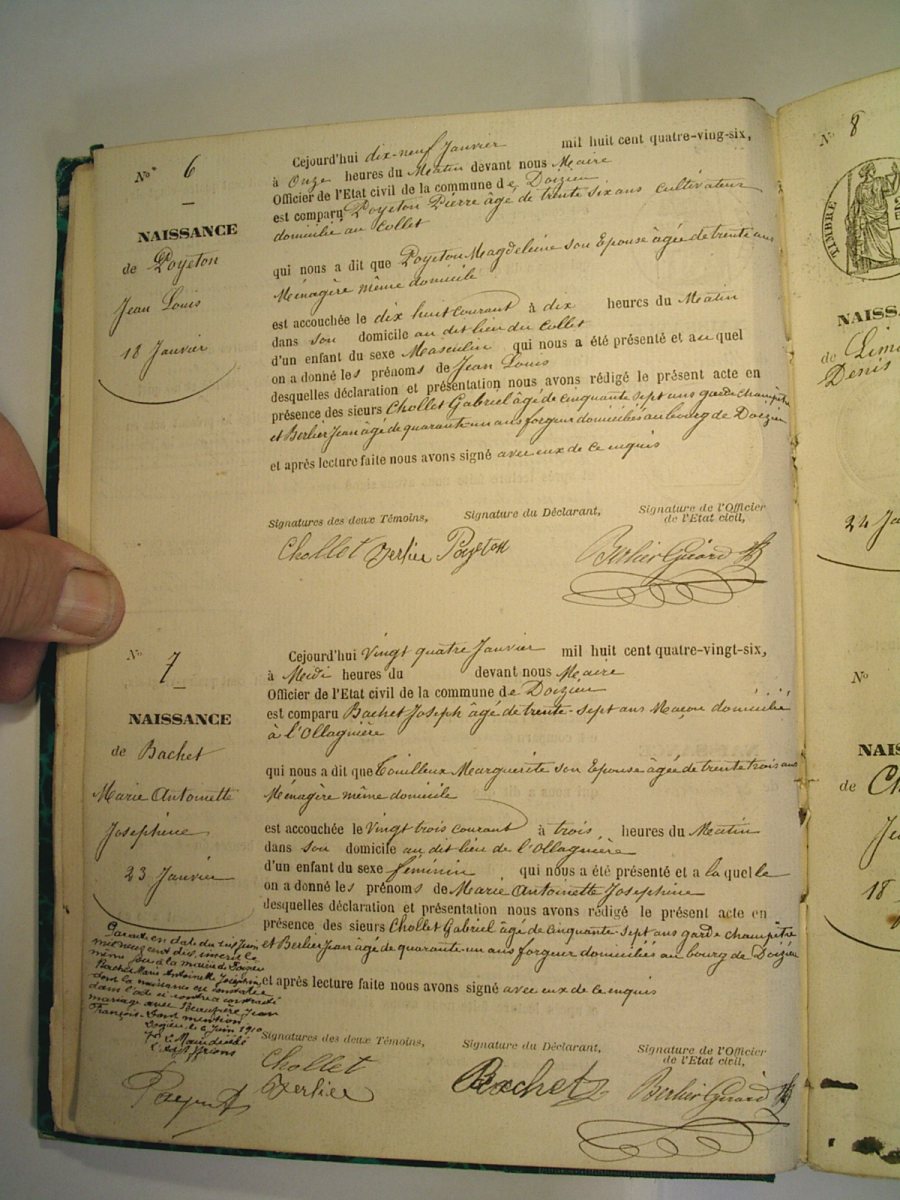 No 6
NAISSANCE
de Poyeton
Jean Louis
18 Janvier
Cejourd'hui dix-neuf Janvier mil huit cent quatre-ving-six,
à Onze heures du Matin devant nous Maire
Officier de l'Etat civil de la commune de Doizieu
est comparu Poyeton Pierre âgé de trente six ans cultivateur
domicilié au Collet
qui nous a dit que Poyeton Magdeleine son Epouse âgée de trente ans
Ménagère même domicile
est accouchée le dix huit courant à dix heures du Matin
dans son domicile au dit lieu du Collet
d'un enfant du sexe Masculin qui nous a été présenté et auquel
on a donné les prénoms de Jean Louis
desquelles déclaration et présentation nous avons rédigé le présent acte en
présence des sieurs Chollet Gabriel âgé de cinquante sept ans garde champêtre
et Berlier Jean âgé de quarante-un ans forgeur domiciliés au bourg de Doizieu
et après lecture faite nous avons signé avec eux de ce enquis
Signatures des deux Témoins, Signature du Déclarant, Signature de l'Officier
de l'Etat civil,
Chollet Berlier Poyeton Berlier Girard
No 7
NAISSANCE
de Bachet
Marie Antoinette
Joséphine
23 Janvier
Cejourd'hui Vingt quatre Janvier mil huit cent quatre-vingt-six,
à Midi heures du devant nous Maire
Officier de l'Etat civil de la commune de Doizieu
est comparu Bachet Joseph âgé de trente-sept ans Maçon domicilié
à l'Ollagnière
qui nous a dit que Touilleux Marguerite son Epouse âgée de trente trois ans
Ménagère même domicile
est accouchée le Vingt trois courant à trois heures du Matin
dans son domicile au dit lieu de l'Ollagnière
d'un enfant du sexe féminin qui nous a été présenté et a la quelle
on a donné les prénoms de Marie Antoinette Josephine
desquelles déclaration et présentation nous avons rédigé le présent acte en
présence des sieurs Chollet Gabriel âgé de cinquante-sept ans garde champêtre
et Berlier Jean âgé de quarante-un ans forgeur domiciliés au bourg de Doizieu
et après lecture faite nous avons signé avec eux de ce enquis
Par acte en date du six Juin
mil neuf cent dix, inscrit le
même jour à la mairie de
Bachet Marie Antoinette Joséphine,
dont la naissance est constatée
dans l'acte ci contre a contracté
mariage avec Beaupère Jean
François. Dont mention
le 6 Juin 1910
Signatures des deux Témoins, Signature du Déclarant, Signature de l'Officier
de l'Etat civil,
Chollet
Berlier Bachet Berlier Girard
No 8
TIMBRE
NAISS
de
Denis
24 Ja
No
NAIS
de Ch
Je
18